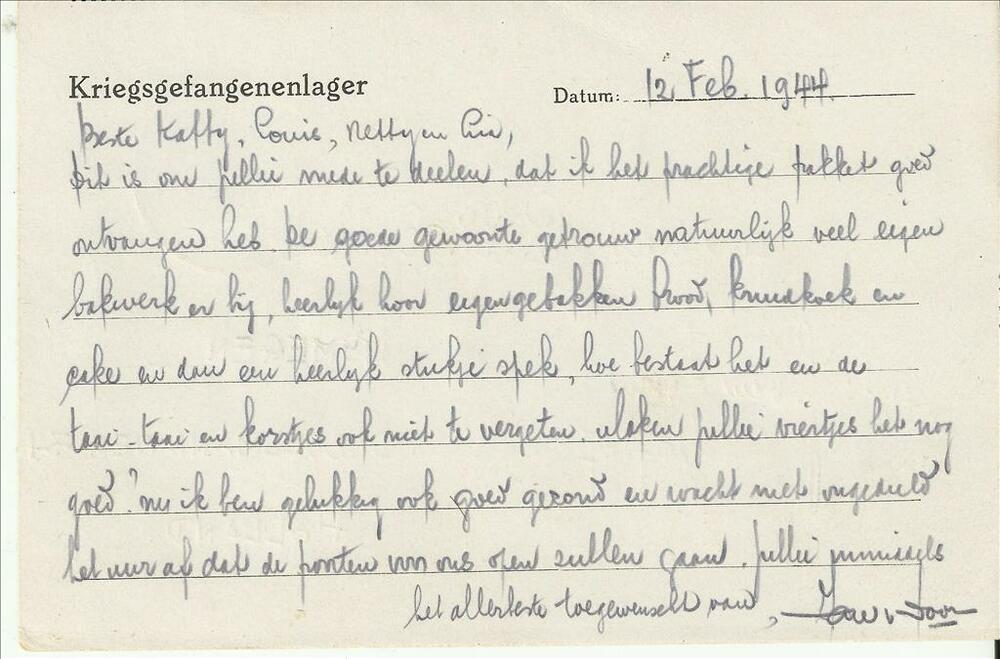 Kriegsgefangenenlager
Datum: 12 Feb. 1944.
Beste Katty, Louis, Netty en Lia,
Dit is om jullie mede te deelen, dat ik het prachtige pakket goed
ontvangen heb De goede gewoonte getrouw natuurlijk veel eigen
bakwerk er bij, heerlijk hoor eigengebakken brood, kruidkoek en
cake en dan een heerlijk stukje spek, hoe bestaat het en de
taai-taai en korstjes ook niet te vergeten. Maken jullie viertjes het nog
goed? nu ik ben gelukkig ook goed gezond en wacht met ongeduld
het uur af dat de poorten van ons open zullen gaan. Jullie inmiddels
het allerbeste toegewenscht van,